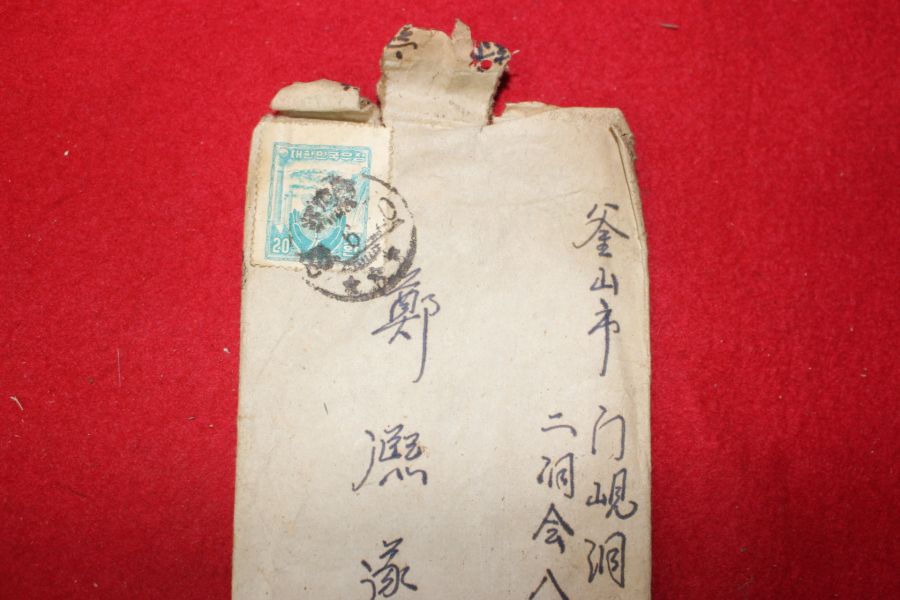 대한민국우표
20
釜山市 门峴洞
二洞会八
鄭